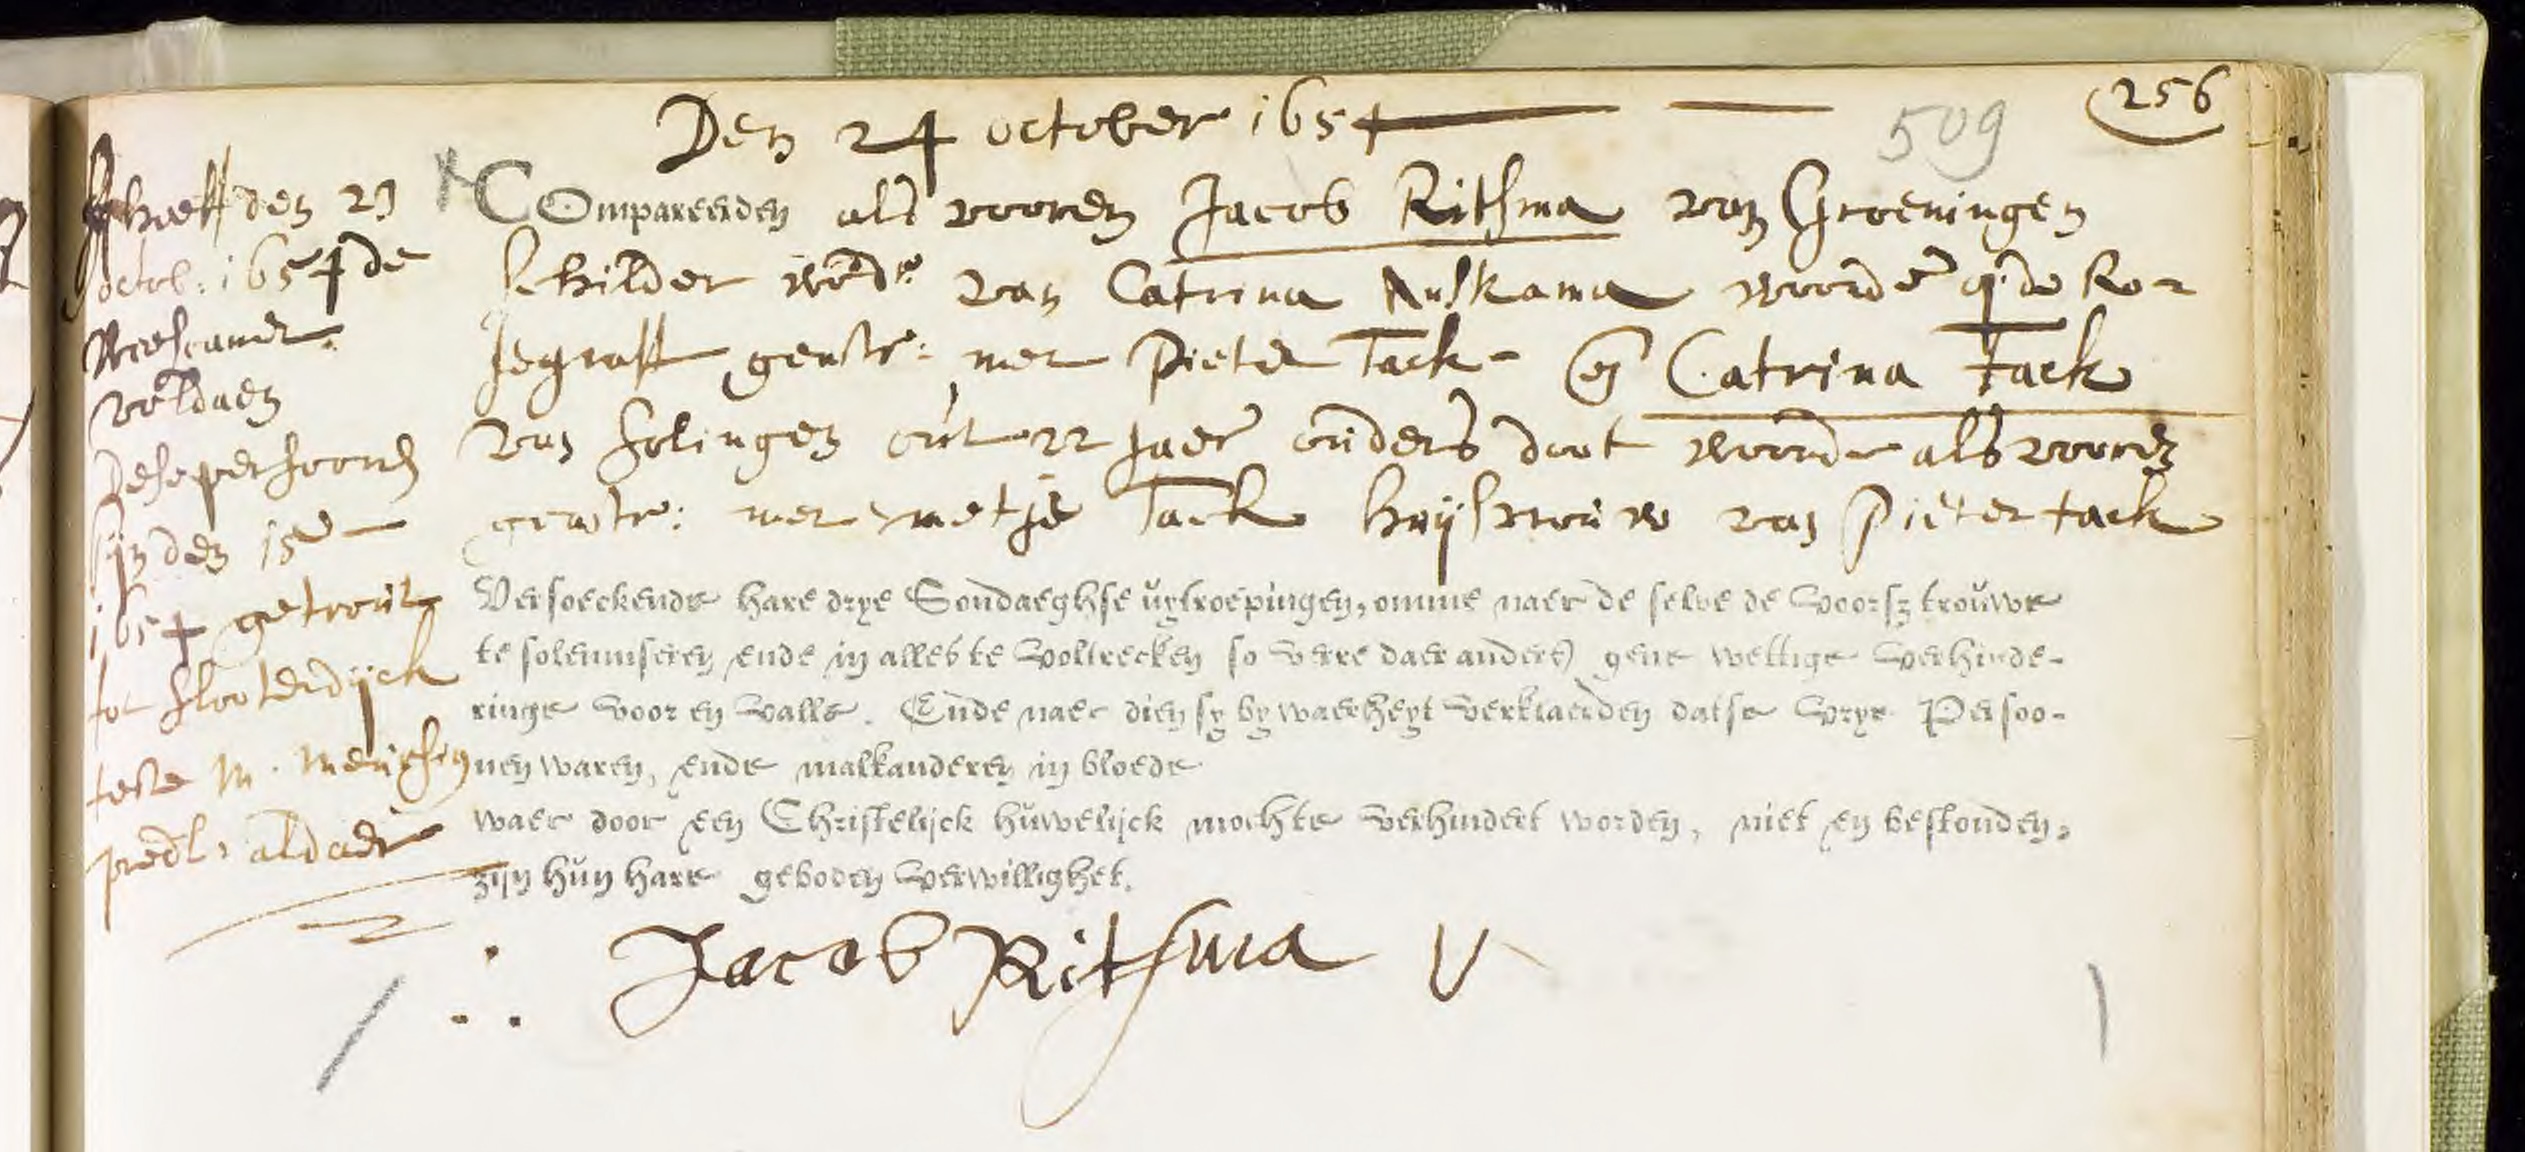 Den 24 october 1654
509
256
Compareerden als vooren Jacob Ritsma van Groeningen
schilder wedr van Catrina Auskama woonde op de Ro-
segraft geastr: met Pieter Tack - en Catrina Tack
van Solingen out 22 Jaer ouders doot woonde als vooren
geastr: met metje Tack huijsvrouw van Pieter tack
Versoeckende hare drye Sondaeghse uytroepingen, omme naer de selve de voorsz trouwe
te solemniseren ende in alles te voltrecken so verre daer anders gene wettige verhinde-
ringe voor en valle. Ende naer dien sy by waerheyt verklaerden datse vrye Persoo-
nen waren, ende malkanderen in bloede
waer door een Christelijck huwelijck mochte verhindert worden, niet en bestonden,
zijn hun hare geboden verwillighet.
Jacob Ritsma
heeft den 23
octob: 1654 de
Weescamer
voldaen
dese persoonen
sijn den 15
1654 getrout
tot slooterdijck
teste M.
predt: aldaer